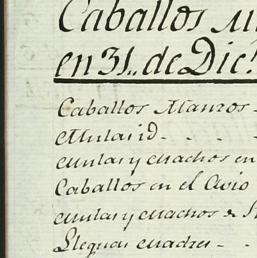 Caballos
en 31,, de Dic.
Caballos Manzos -
Mulas id - - -
Mulas y Machos en
Caballos en el Avio
Mulas y Machos de
Lleguas Madres - -